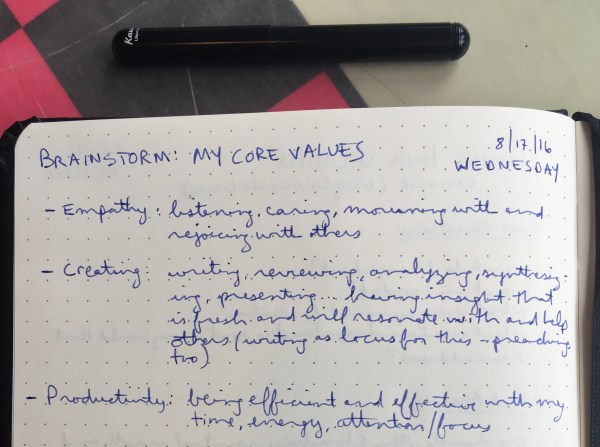 Kaw
BRAINSTORM: MY CORE VALUES
8/17/16
WEDNESDAY
- Empathy: listening, caring, mourning with and
rejoicing with others
- Creating: writing, reviewing, analyzing, synthesiz-
ing, presenting... having insight that
is fresh and will resonate with and help
others (writing as locus for this - preaching
too)
- Productivity: being efficient and effective with my
time, energy, attention/focus